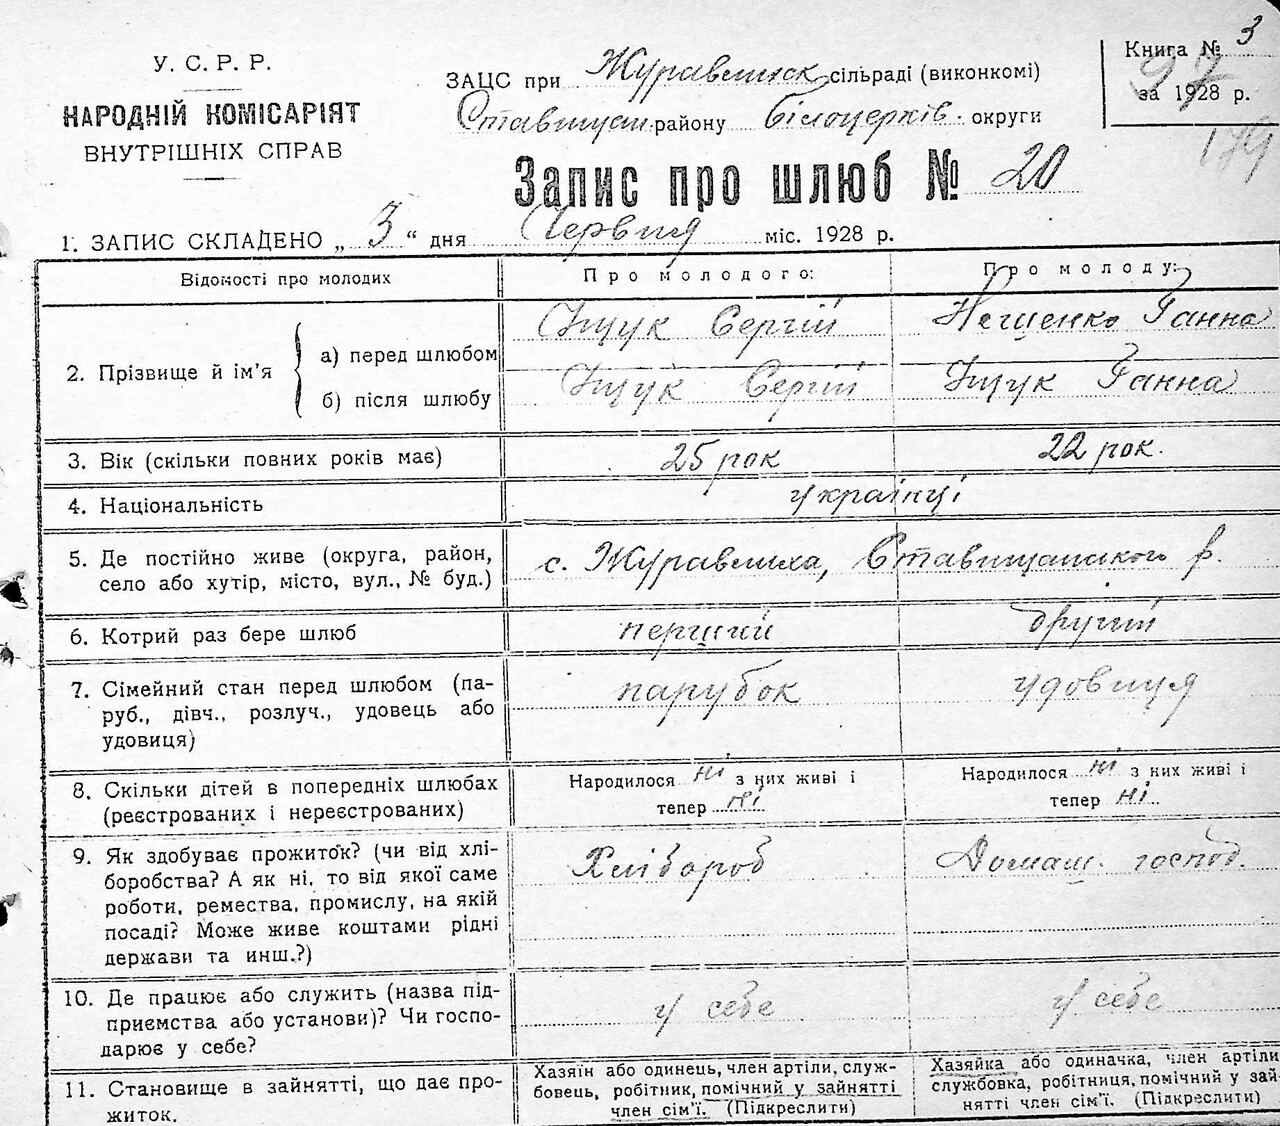 3
У. С. Р. Р.
НАРОДНІЙ КОМІСАРІЯТ
ВНУТРІШНІХ СПРАВ
ЗАЦС при Журавлиск сільраді (виконкомі)
Ставищан району Білоцерків. округи
Книга №
97
за 1928 р.
179
Запис про шлюб № 20
1. ЗАПИС СКЛАДЕНО „ 3 “ дня Червня міс. 1928 р.
Відомості про молодих
Про молодого:
Про молоду:
2. Прізвище й ім'я
а) перед шлюбом
Іщук Сергій
Нещенко Ганна
б) після шлюбу
Іщук Сергій
Іщук Ганна
3. Вік (скільки повних років має)
25 рок
22 рок.
4. Національність
українці
5. Де постійно живе (округа, район,
село або хутір, місто, вул., № буд.)
с. Журавлиха, Ставищанського р.
6. Котрий раз бере шлюб
перший
другий
7. Сімейний стан перед шлюбом (па-
руб., дівч., розлуч., удовець або
удовиця)
парубок
удовиця
8. Скільки дітей в попередніх шлюбах
(реєстрованих і нереєстрованих)
Народилося ні з них живі і
тепер ні
Народилося ні з них живі і
тепер ні
9. Як здобуває прожиток? (чи від хлі-
боробства? А як ні, то від якої саме
роботи, ремества, промислу, на якій
посаді? Може живе коштами рідні
держави та инш.?)
Хлібороб
Домаш. господ.
10. Де працює або служить (назва під-
приємства або установи)? Чи госпо-
дарює у себе?
у себе
у себе
11. Становище в зайнятті, що дає про-
житок.
Хазяїн або одинець, член артіли, служ-
бовець, робітник, помічний у зайнятті
член сім'ї. (Підкреслити)
Хазяйка або одиначка, член артіли,
службовка, робітниця, помічний у зай-
нятті член сім'ї. (Підкреслити)